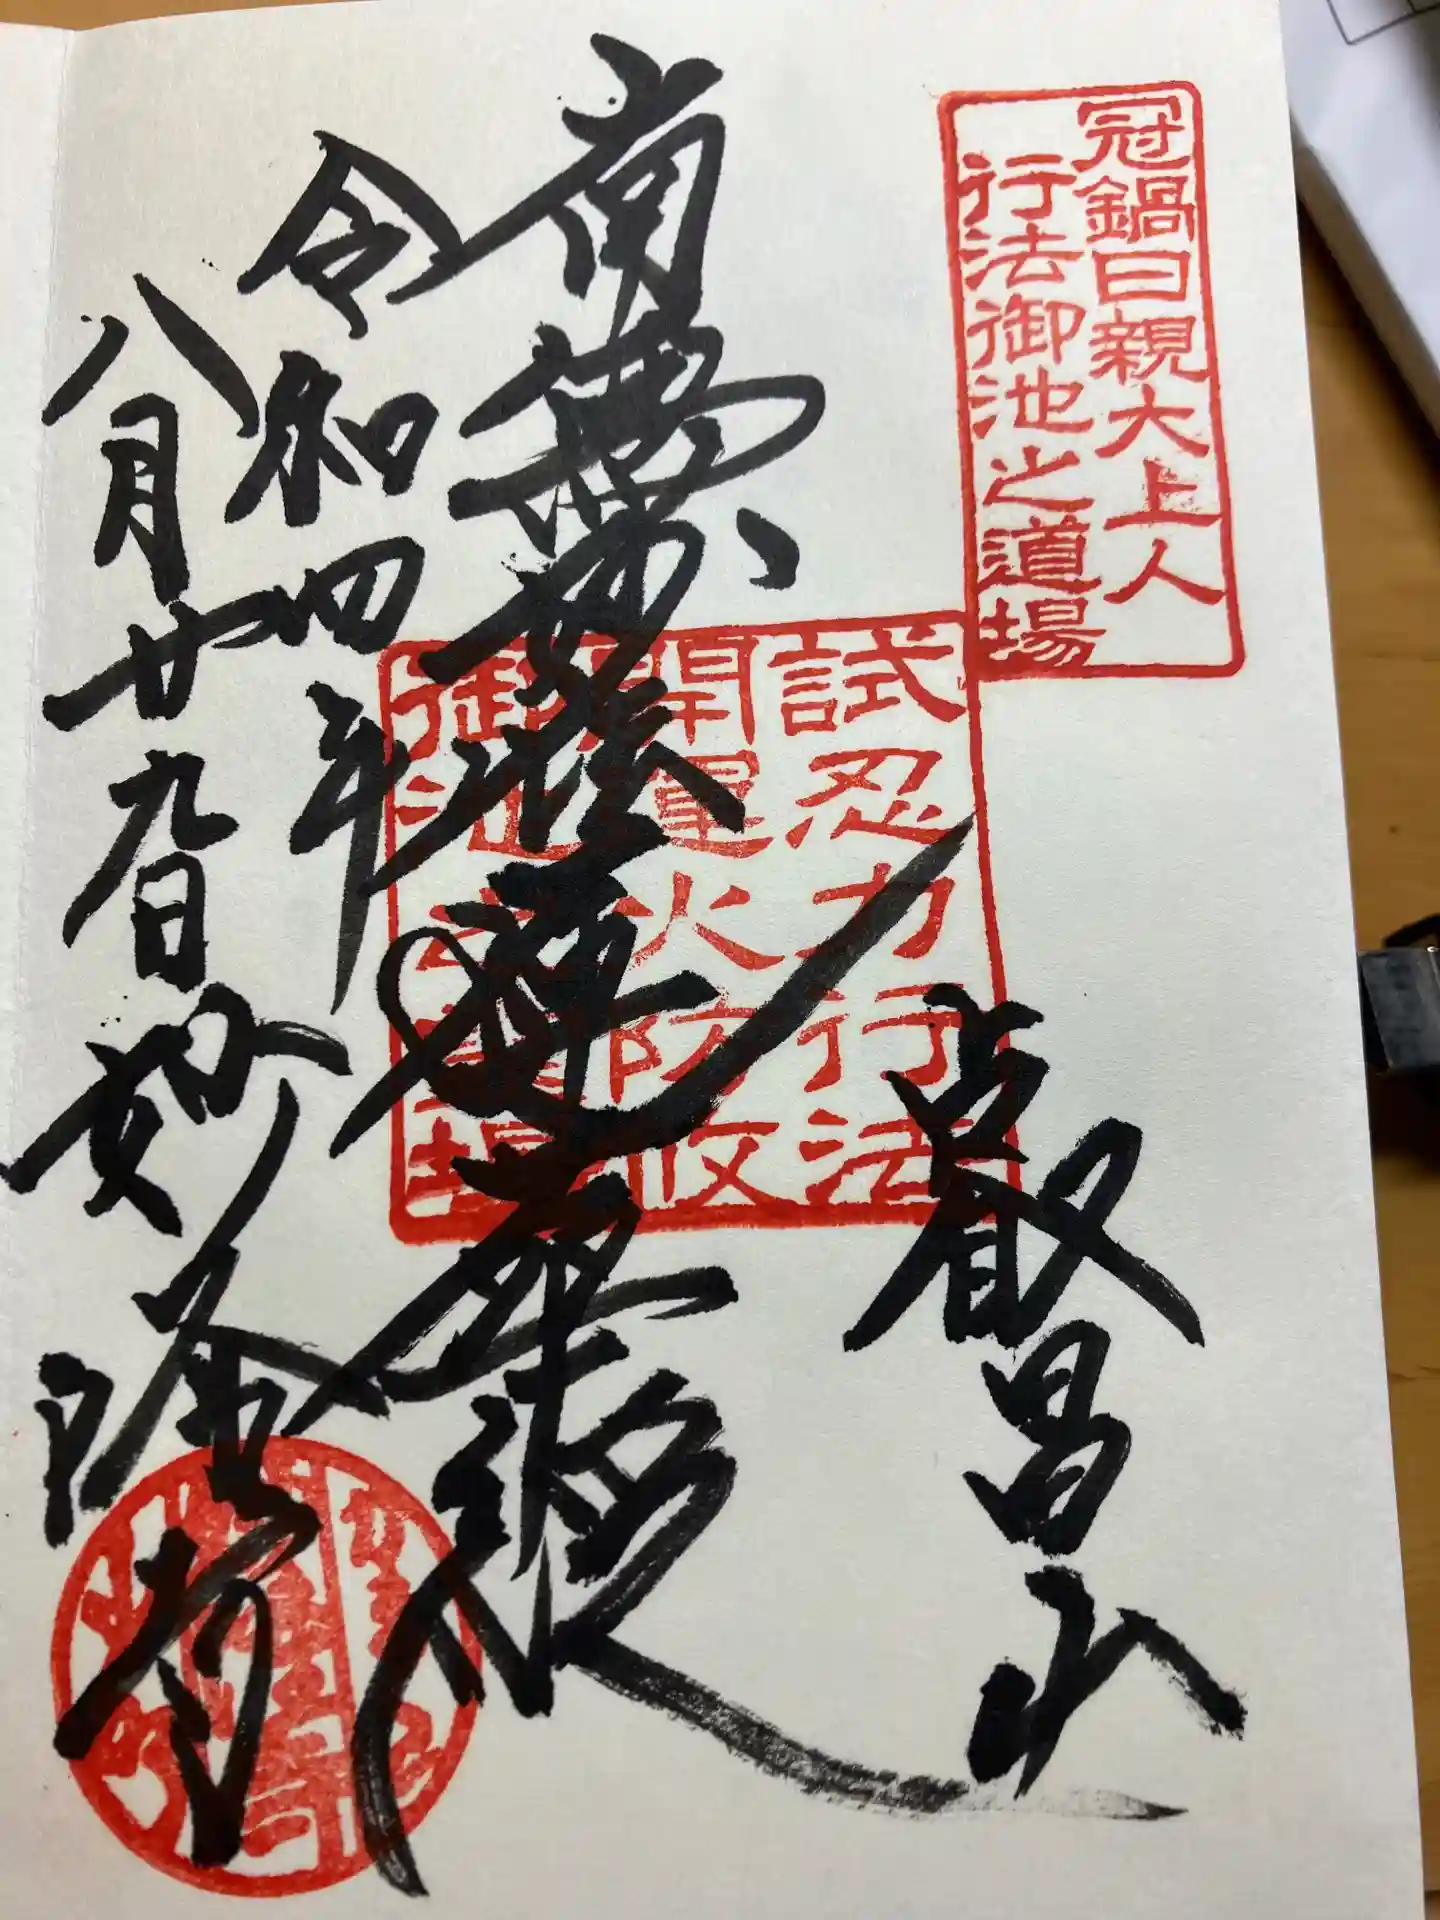 冠鍋日親大上人
行法御池之道場
試忍力行法
開運火防
御池之霊場
叡昌山
南無妙法蓮華経
令和四年
八月廿九日
妙隆寺